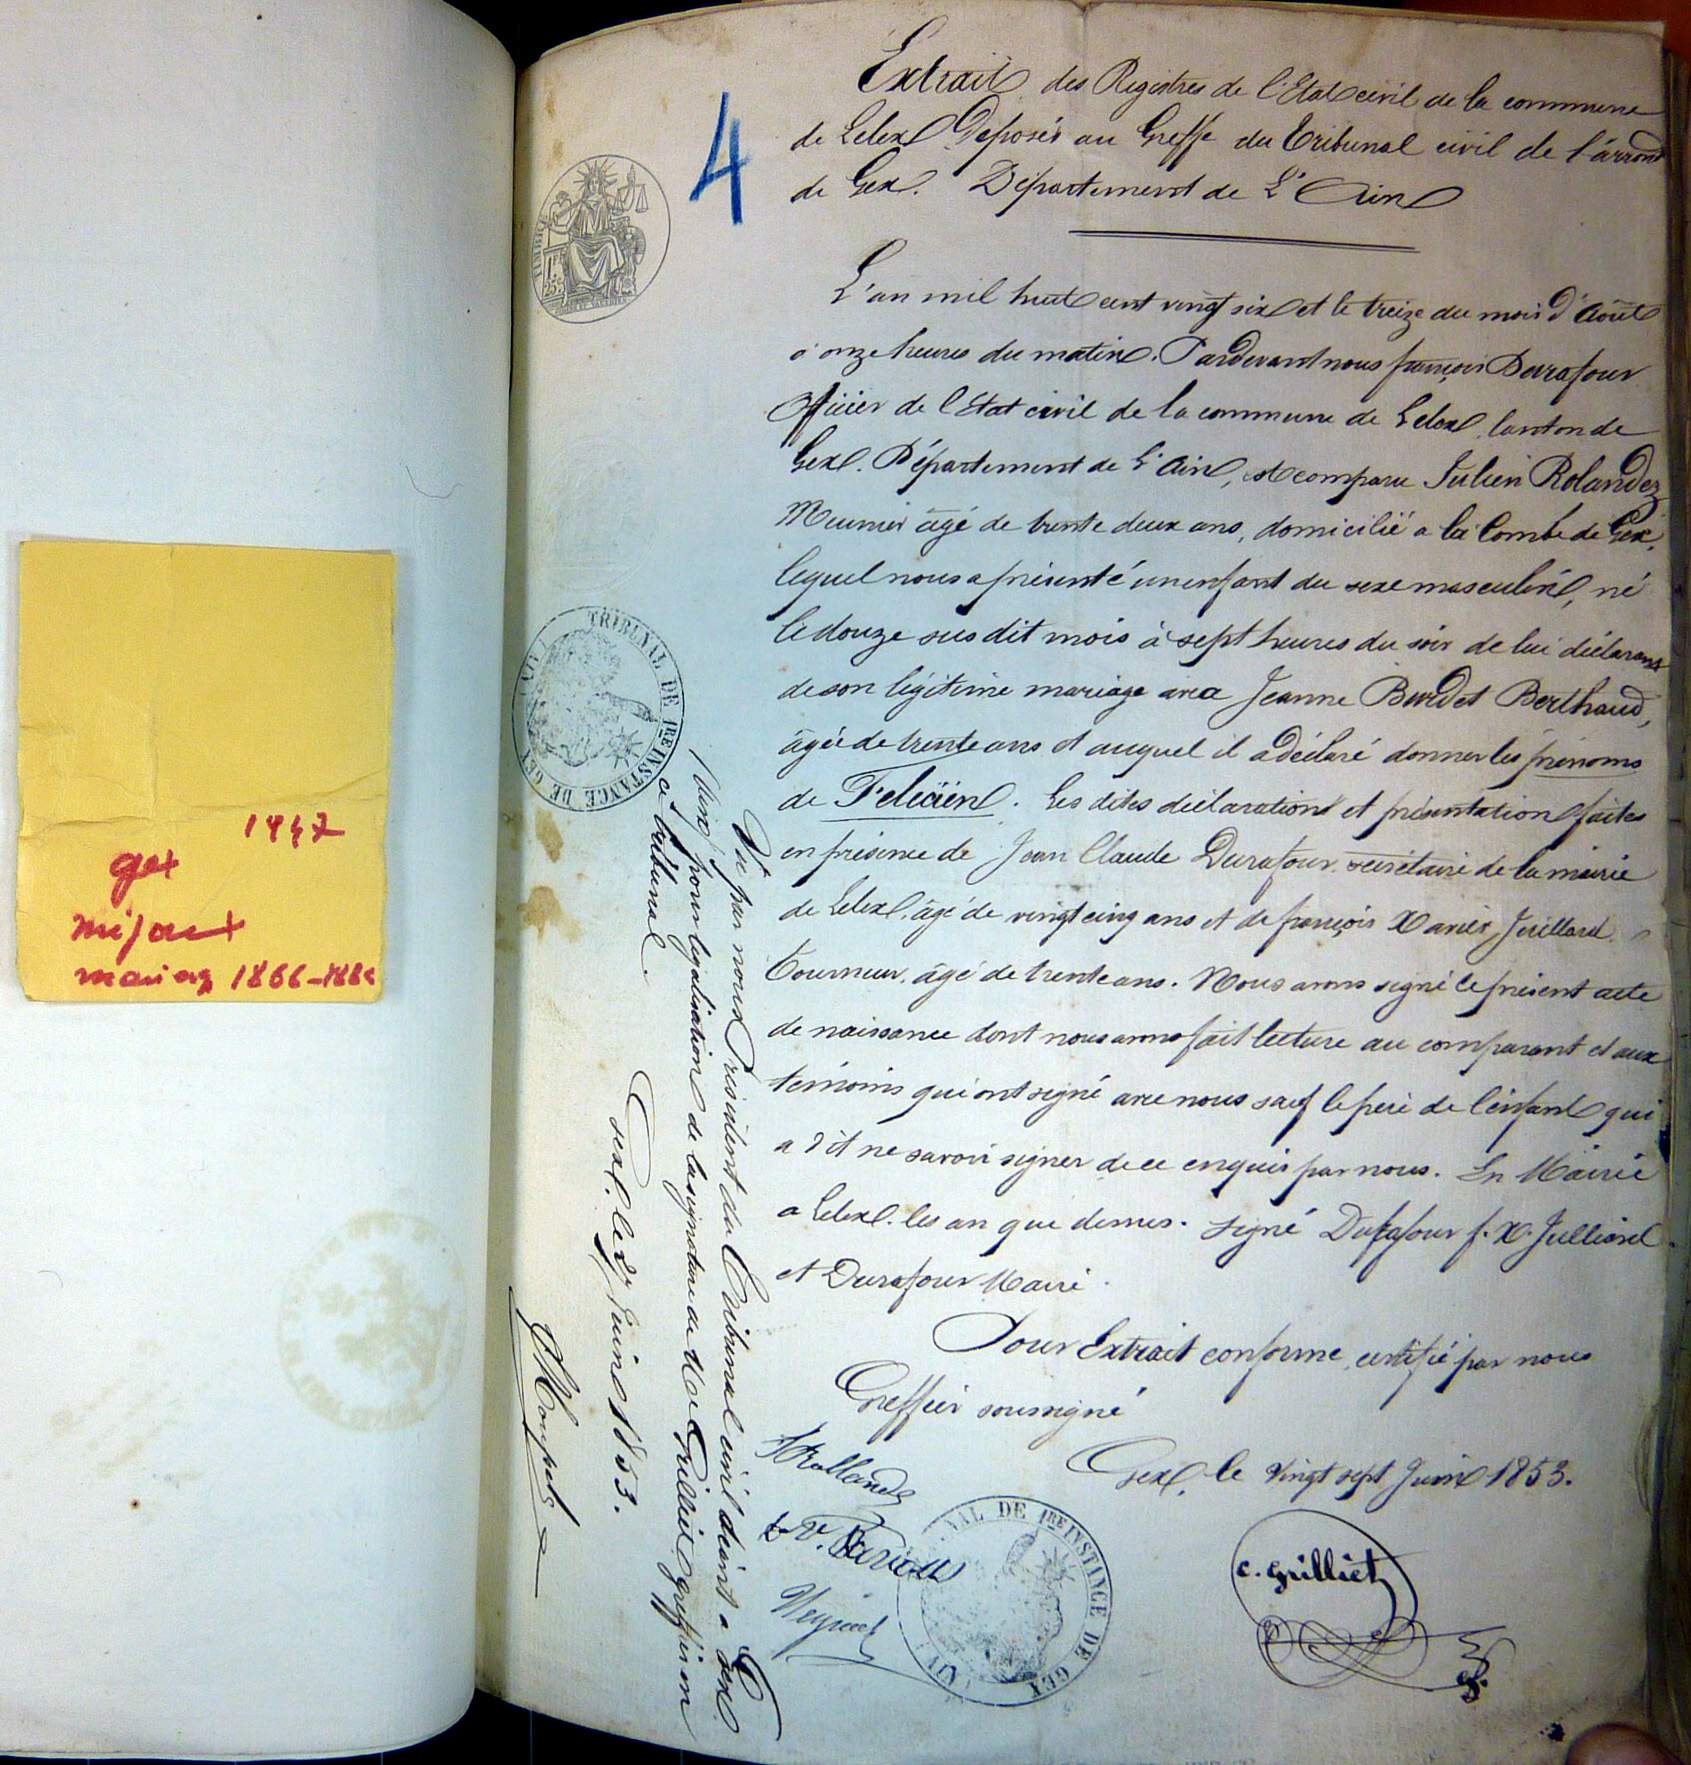 1947
gex
mijoux
mariag 1866-188
4
Extrait des Registres de l'Etat civil de la commune
de Lelex Déposés au Greffe du Tribunal civil de l'arrond
de Gex. Département de L'Ain
TIMBRE
1 FR
25 C
L'an mil huit cent vingt six et le treize du mois d'Août
à onze heures du matin. Pardevant nous françois Durafour
Officier de l'Etat civil de la commune de Lelex, canton de
Gex. Département de l'Ain, est comparu Julien Rolandez
Meunier âgé de trente deux ans, domicilié a la Combe de Gex,
lequel nous a présenté un enfant du sexe masculin, né
le douze sus dit mois à sept heures du soir de lui déclarant
de son légitime mariage avec Jeanne Burdet Berthaud,
âgée de trente ans et auquel il a déclaré donner les prénoms
de Felicien. Les dites déclaration et présentation faites
en présence de Jean Claude Durafour secrétaire de la mairie
de Lelex, âgé de vingt cinq ans et de françois Xavier Juillard
Tourneur, âgé de trente ans. Nous avons signé le présent acte
de naissance dont nous avons fait lecture au comparant et aux
témoins qui ont signé avec nous sauf le père de l'enfant qui
a dit ne savoir signer de ce enquis par nous. En Mairie
a Lelex les an que dessus. Signé Durafour f. X. Julliard
et Durafour Maire.
Pour Extrait conforme, certifié par nous
Greffier soussigné
Gex, le Vingt sept Juin 1853.
J Rolland
C. Grilliet
TRIBUNAL DE 1RE INSTANCE DE GEX (AIN)
Vu par nous Président du Tribunal civil séant a Gex
(Ain) pour légalisation de la signature de Me Grilliet greffier en
ce tribunal.
Gex, le 27 Juin 1853.
TRIBUNAL DE 1RE INSTANCE DE GEX (AIN)